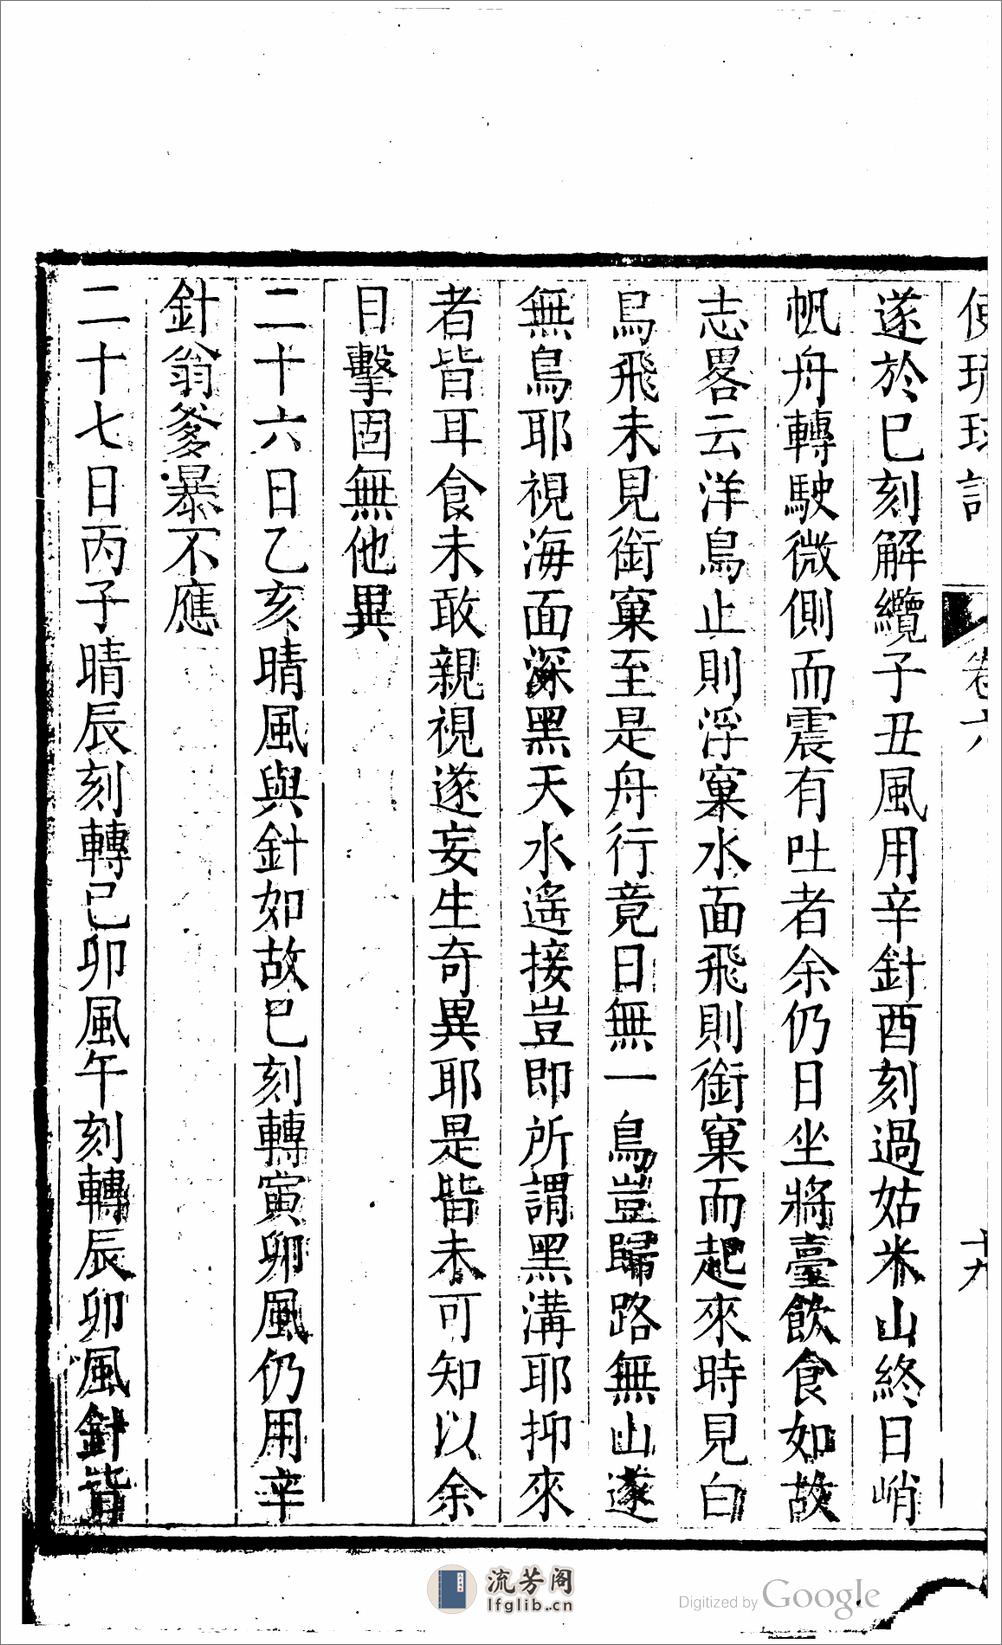 使琉球記 卷六 十九
遂於巳刻解纜子丑風用辛針酉刻過姑米山終日峭
帆舟轉駛微側而震有吐者余仍日坐將臺飲食如故
志畧云洋鳥止則浮窠水面飛則銜窠而起來時見白
鳥飛未見銜窠至是舟行竟日無一鳥豈歸路無山遂
無鳥耶視海面深黑天水遙接豈即所謂黑溝耶抑來
者皆耳食未敢親視遂妄生奇異耶是皆未可知以余
目擊固無他異
二十六日乙亥晴風與針如故巳刻轉寅卯風仍用辛
針翁爹暴不應
二十七日丙子晴辰刻轉己卯風午刻轉辰卯風針皆
流芳阁
lfglib.cn
Digitized by Google